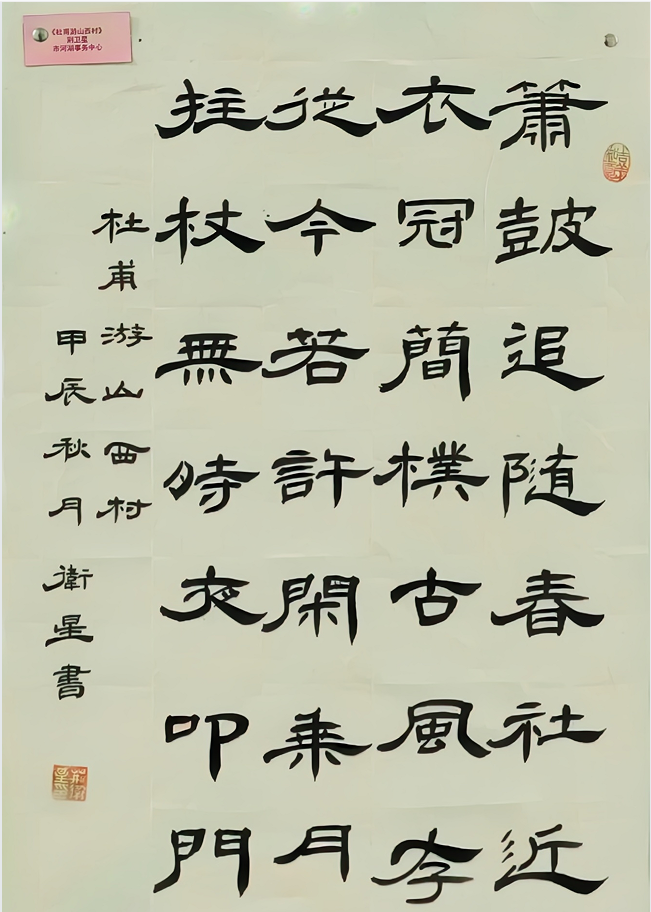 《杜甫游山西村》
荆卫星
市河湖事务中心
簫皷追随春社近
衣冠簡樸古風存
從今若許閑乘月
拄杖無時夜叩門
杜甫游山西村
甲辰秋月衛星書